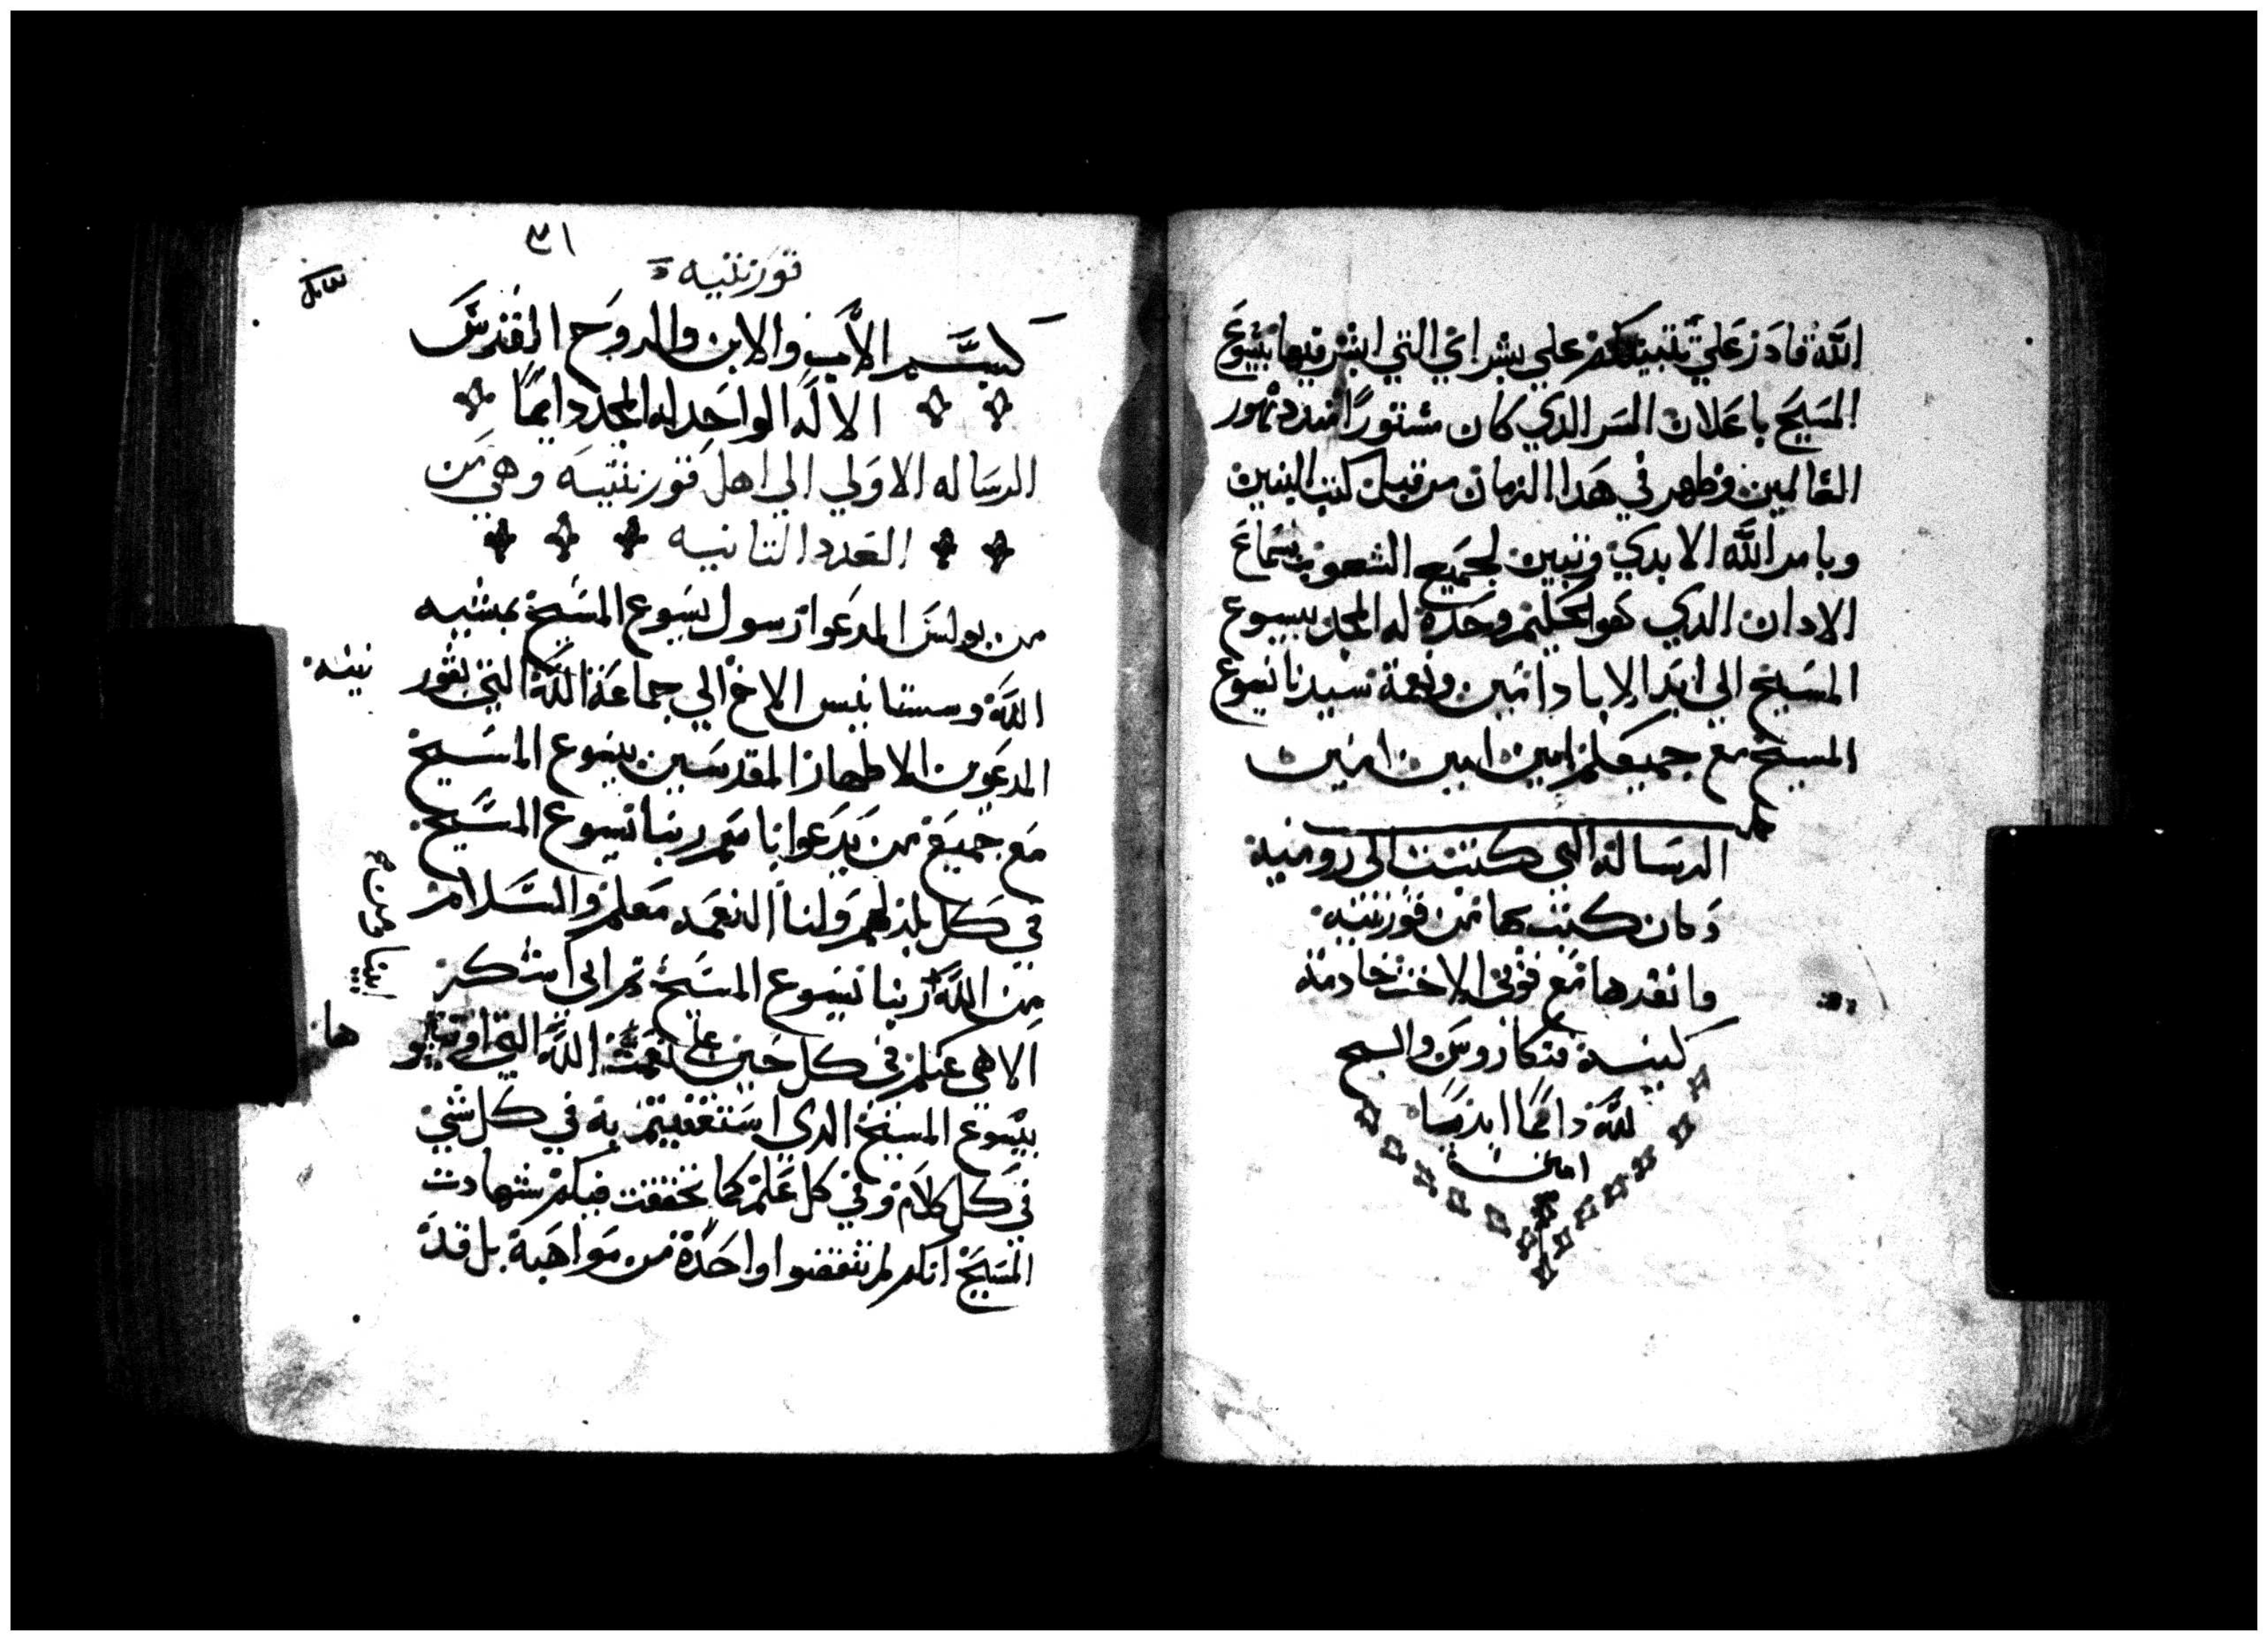 الله قادر علي تتبيتكم علي بشراي التي ابشر فيها بيسوع
المسيح باعلان السر الدي كان مستورًا مند دهور
العالمين وظهر في هدا الزمان من قبل كتب النبيين
وبامر الله الابدي وتبين لجميع الشعوب بسماع
الادان الدي هو الحكيم وحده له المجد بيسوع
المسيح الي ابد الاباد امين ونعمة سيدنا يسوع
المسيح مع جميعكم امين امين امين
الرساله التي كتبت الى رومية
وكان كتبها من قورنتيه
وانفدها مع فوبى الاخت خادمة
كنيسة قنكاروس والسبح
لله دايمًا ابديًا
امين
٣١
قورنتيه
بسم الاب والابن والروح القدس
الالَه الواحد له المجد دايمًا
الرساله الاولي الي اهل قورنتيه وهي من
العدد التانيه
من بولس المدعوا رسول يسوع المسيح بمشيه
الله وسستانيس الاخ الي جماعة الله التي بقور
نتيه
المدعوين الاطهار المقدسين بيسوع المسيح
مع جميع من يدعوا باسم ربنا يسوع المسيح
في كل بلد لهم ولنا النعمه معكم والسلام
من الله ربنا يسوع المسيح تم اني اشكر
الاهي عنكم في كل حين علي نعمت الله التي اوتيتو
ها
بيسوع المسيح الدي استغنيتم به في كل شي
في كل كلام وفي كل علم كما تحققت فيكم شهادت
المسيح انكم لم تنقصوا واحدة من مواهبة بل قد